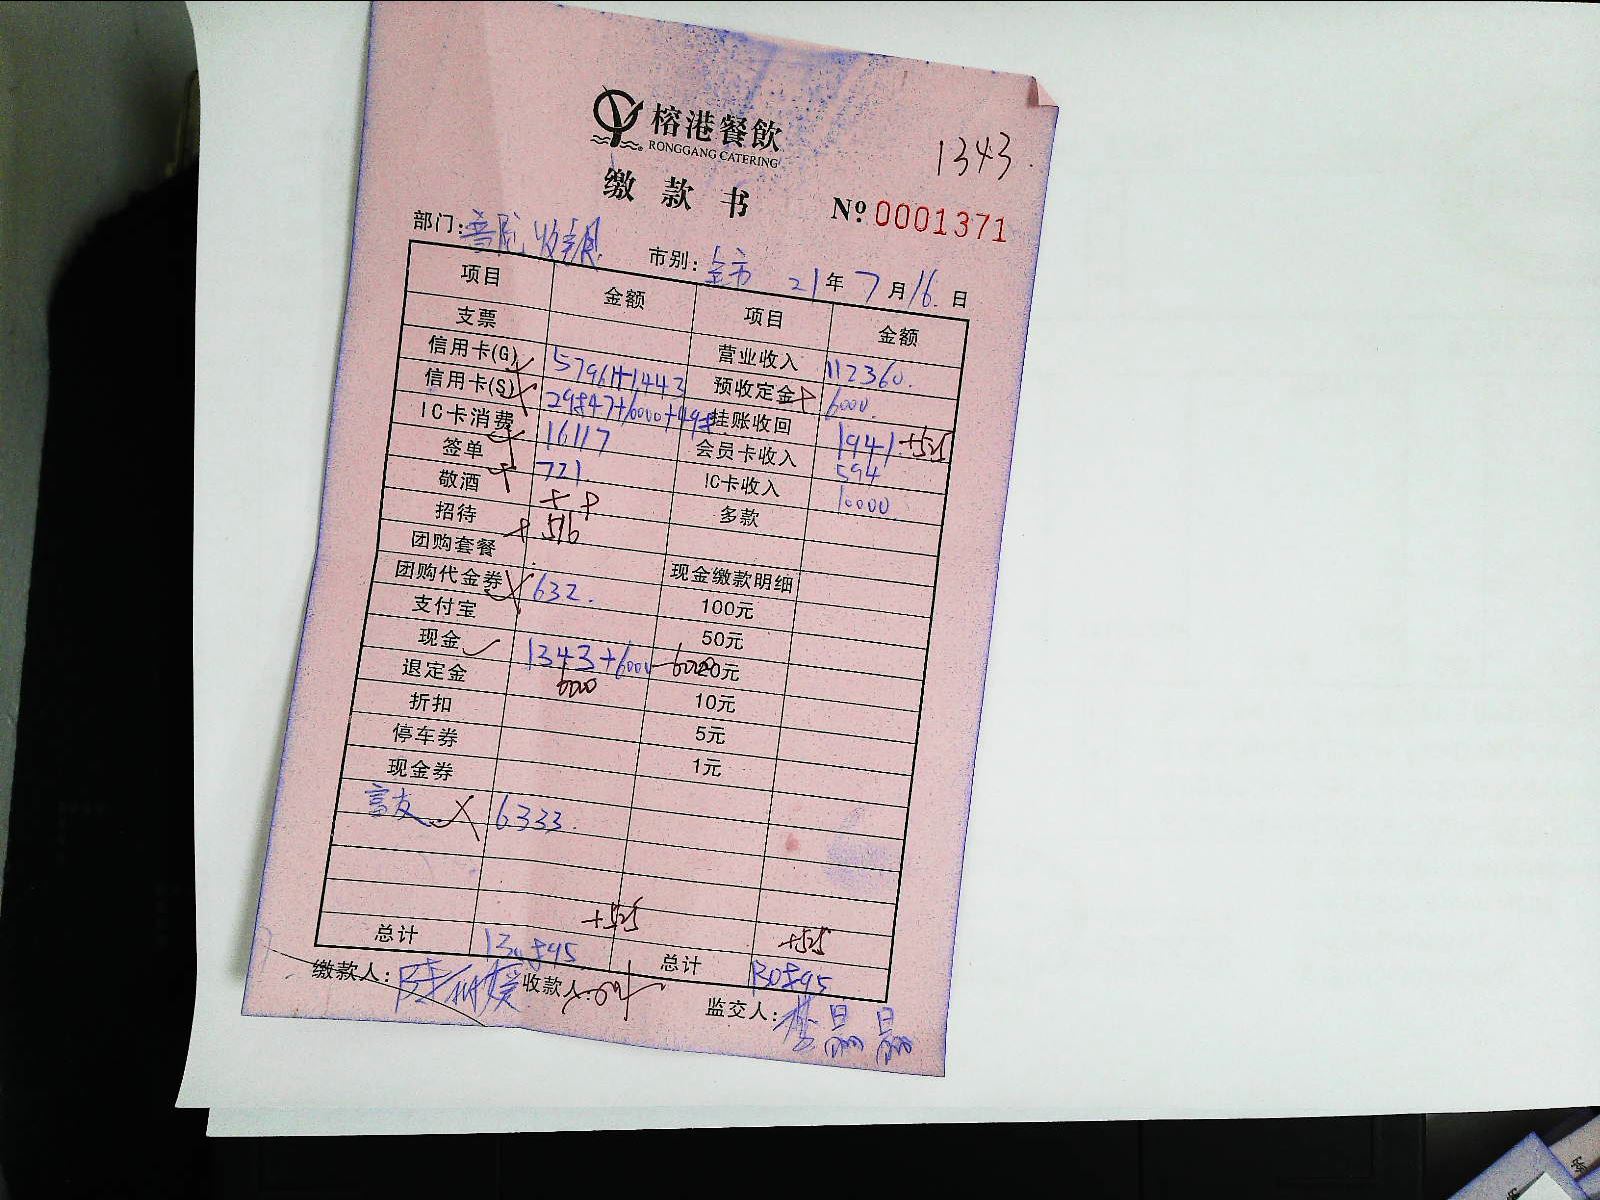 榕港餐飲
RONGGANG CATERING
1343.
缴款书
№ 0001371
部门: 市别: 全市 21年7月16.日
项目 金额 项目 金额
支票 营业收入 112360.
信用卡(G) 57961+1443 预收定金 6000.
信用卡(S) 挂账收回 1941.+525
IC卡消费 16117 会员卡收入 594
签单 721. IC卡收入 10000
敬酒 多款
招待 516
团购套餐 现金缴款明细
团购代金券 632. 100元
支付宝 50元
现金 1343+6000-6000 20元
退定金 6000 10元
折扣 5元
停车券 1元
现金券
富友 6333.
+525 +525
总计 130895 总计 130895
缴款人: 收款人: 监交人: